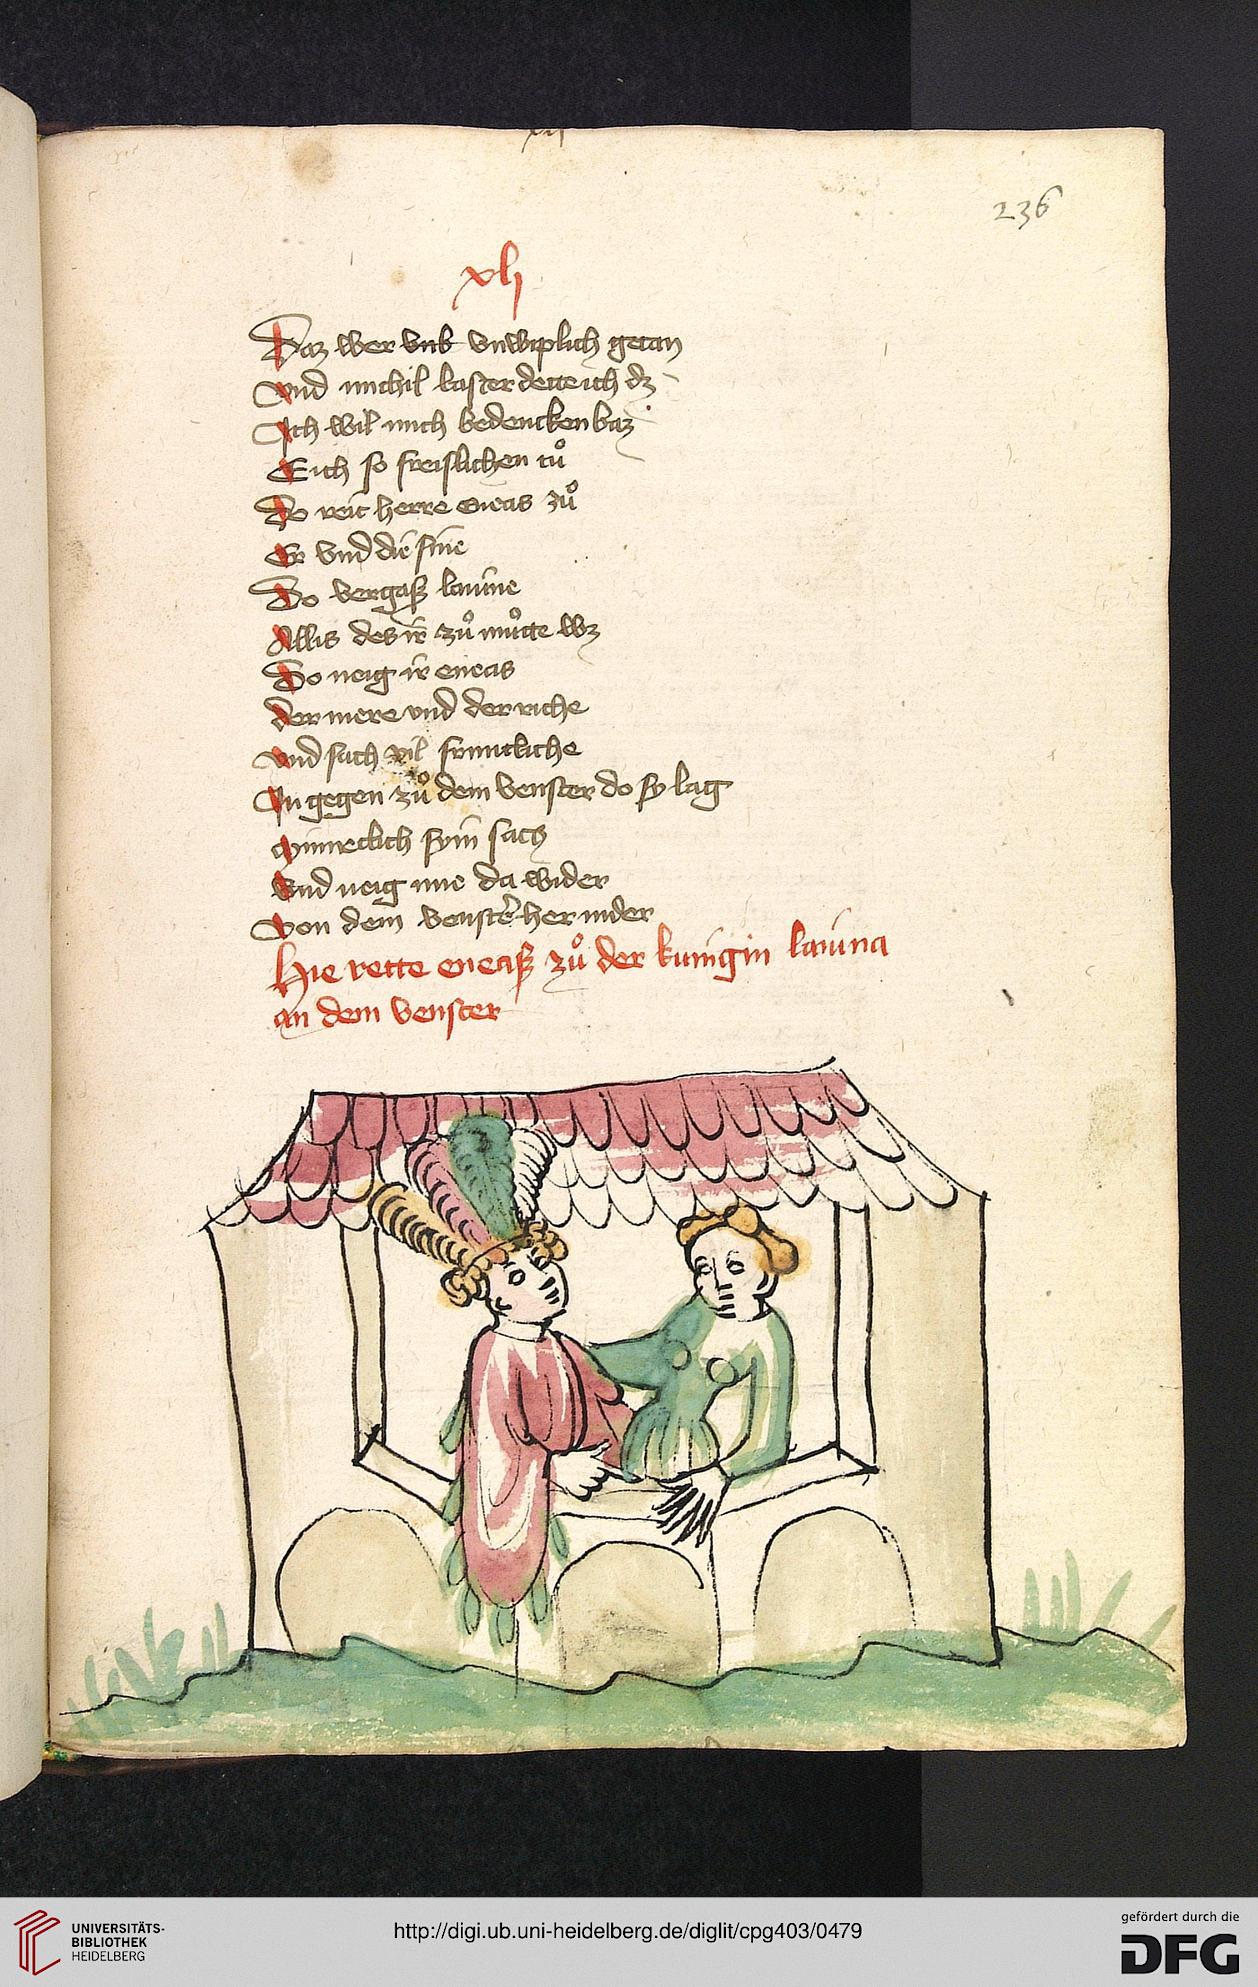 236
xli
Daz wer vnb vnwiplich getan
vnd michil laster dette ich dz
Ich wil mich bedencken baz
E ich so freislichen tuͦ
Do reit herre eneas zuͦ
Er vnd die sine
Do vergaß lauine
Allis des ir zuͦ muͦtte wz
Do neig ir eneas
der mere vnd der riche
vnd sach vil fruntliche
In gegen zuͦ dem venster do sy lag
Minneclich syin sach
vnd neig ime da wider
von dem venster her nider
Hie rette eneaß zuͦ der kunigin lauina
an dem venster
UNIVERSITÄTS-
BIBLIOTHEK
HEIDELBERG
http://digi.ub.uni-heidelberg.de/diglit/cpg403/0479
gefördert durch die
DFG